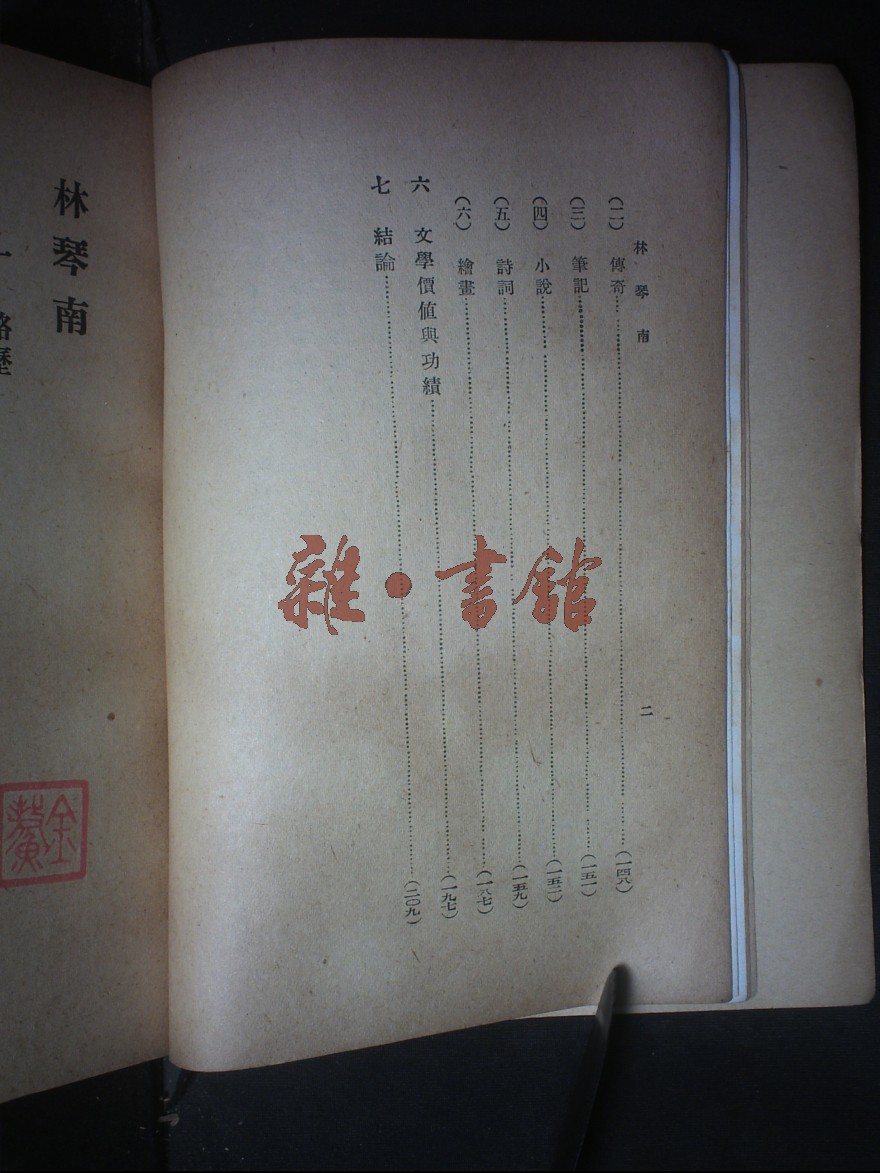 林琴南
二
(二) 傳奇……(一四八)
(三) 筆記……(一五一)
(四) 小說……(一五二)
(五) 詩詞……(一五九)
(六) 繪畫……(一八七)
六 文學價值與功績……(一九七)
七 結論……(二〇九)
雜·書館
林琴南
略歷